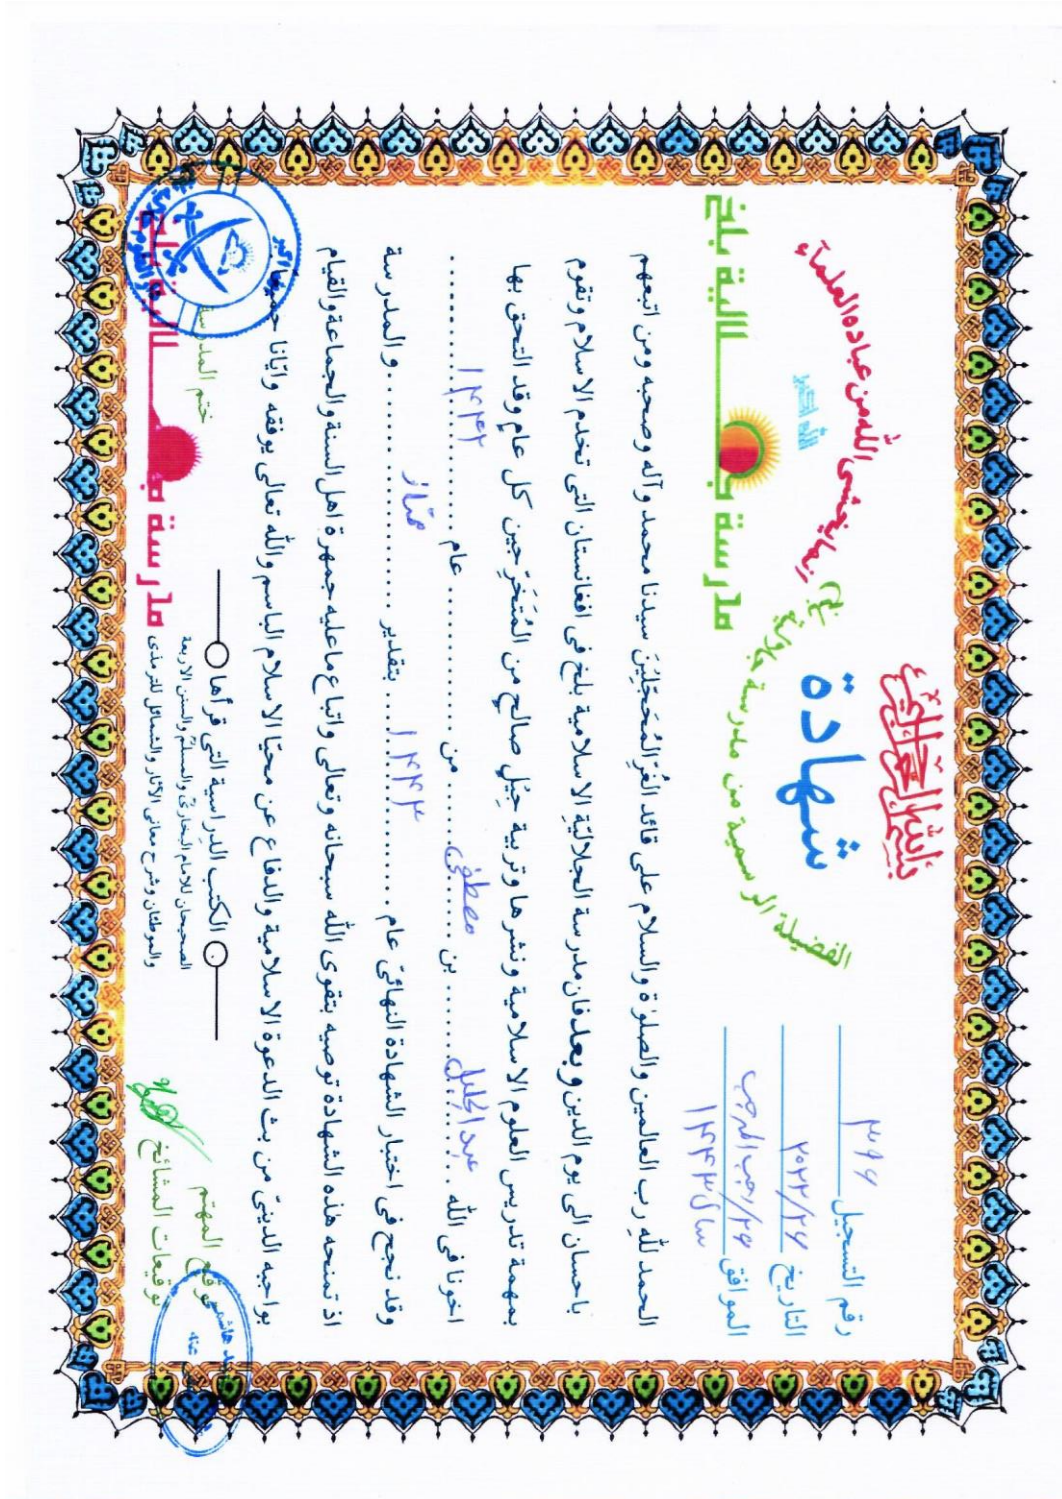 بسم الله الرحمن الرحيم
شهادة
الفضيلة الرسمية من مدرسة جلالية بلخ
انما يخشى الله من عباده العلمآء
الله اكبر
رقم التسجيل ۳۹۶
التاريخ
الموافق ۲۶/رجب المرجب
سال ۱۴۴۳
مدرسة جلالية بلخ
الحمد لله رب العالمين والصلوٰة والسلام على قائد الغُرِّ المُحَجَّلِيْنَ سيدنا محمد وآله وصحبه ومن اتبعهم
باحسان الى يوم الدين وبعد فان مدرسة الجلاليّة الاسلامية بلخ فى افغانستان التى تخدم الاسلام وتقوم
بمهمة تدريس العلوم الاسلامية ونشرها وتربية جِيْلٍ صالحٍ من المُتَخَرِّجين كل عامٍ وقد التحق بها
اخونا فى الله عبدالجليل بن مصطفى من عام ۱۴۴۲
وقد نجح فى اختبار الشهادة النهائىّ عام ۱۴۴۳ بتقدير ممتاز والمدرسة
اذ تمنحه هذه الشهادة توصيه بتقوى الله سبحانه وتعالى واتباع ماعليه جمهرة اهل السنة والجماعة والقيام
بواجبه الدينىّ من بث الدعوة الاسلامية والدفاع عن محيّا الاسلام الباسم والله تعالى يوفقه وايّانا
الكتب الدراسية التى قرأها
الصحيحان للامام البخارىّ والمسلمّ والسنن الاربعة
والموطئان وشرح معانى الآثار والشمائل للترمذى
موقع المهتم
توقيعات المشائخ
ختم المدرسة
مدرسة جلالية بلخ